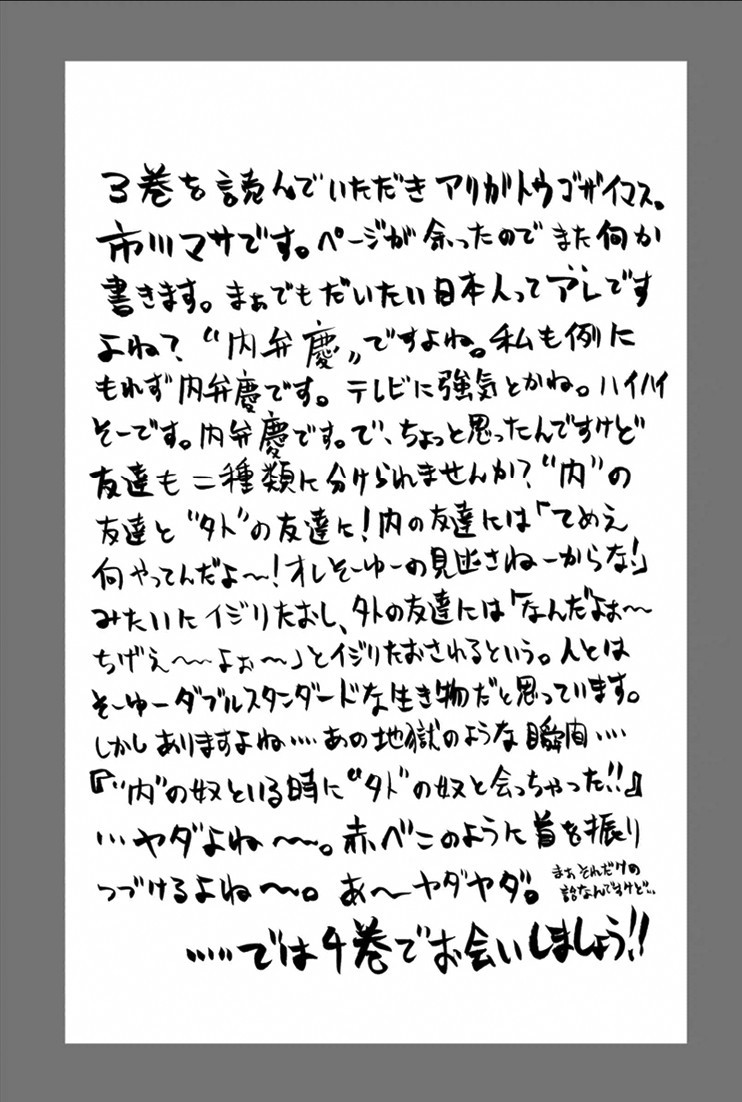 3巻を読んでいただきアリガトウゴザイマス。
市川マサです。ページが余ったのでまた何か
書きます。まぁでもだいたい日本人ってアレです
よね?“内弁慶”ですよね。私も例に
もれず内弁慶です。テレビに強気とかね。ハイハイ
そーです。内弁慶です。で、ちょっと思ったんですけど
友達も二種類に分けられませんか?“内”の
友達と“外”の友達に!内の友達には「てめえ
何やってんだよ～!オレそーゆーの見逃さねーからな!」
みたいにイジりたおし、外の友達には「なんだよぉ～
ちげぇ～～よぉ～」とイジりたおされるという。人とは
そーゆーダブルスタンダードな生き物だと思っています。
しかしありますよね‥‥あの地獄のような瞬間‥‥
『“内”の奴といる時に“外”の奴と会っちゃった!!』
…ヤダよね～～。赤べこのように首を振り
つづけるよね～～。あ～ヤダヤダ。
まぁそれだけの
話なんですけど…
‥‥‥では4巻でお会いしましょう!!